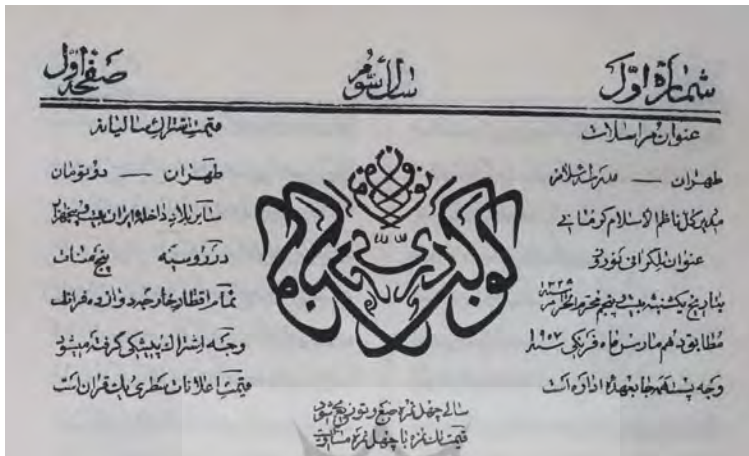 شماره اوّل
سال سوّم
صفحه اوّل
عنوان مراسلات
طهران — مدرسه اسلام
مدیر کل ناظم الاسلام کرمانی
عنوان تلگرافی نوروز
بتاریخ یکشنبه بیست و پنجم محرم الحرام ۱۳۲۵
مطابق دهم مارس ماه فرنگی سنه ۱۹۰۷
وجه پست همه جا بعهده اداره است
کوکب دری
قیمت اشتراک سالیانه
طهران — دو تومان
سایر بلاد داخله ایران بیست و پنج قران
در روسیه پنج منات
تمام اقطار خارجه دوازده فرانک
وجه اشتراک پیشکی گرفته میشود
قیمت اعلانات سطری یک قران است
سالی چهل نمره طبع و توزیع میشود
قیمت یک نمره با چهل نمره مساویست